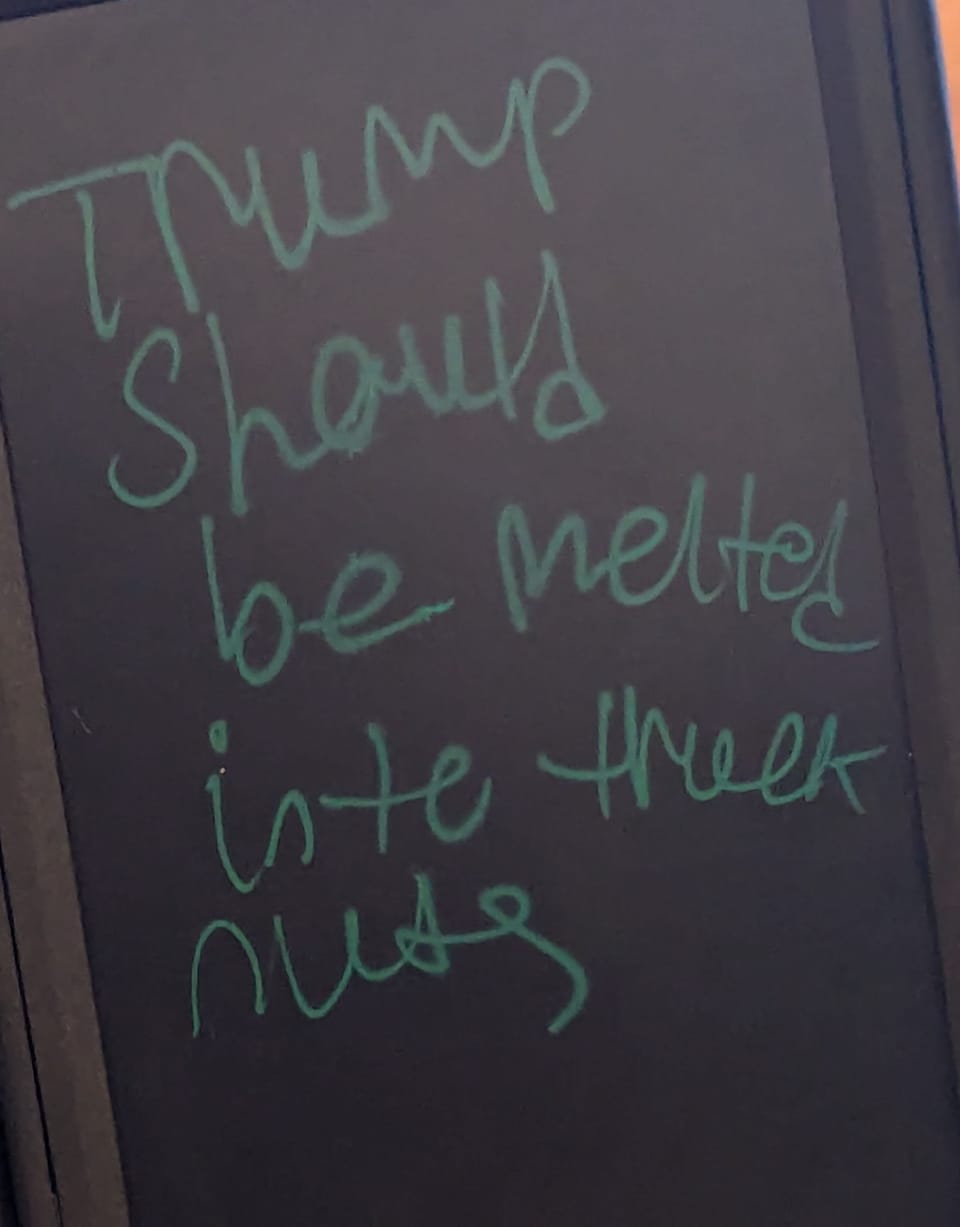 Trump
Should
be melted
into truck
nuts